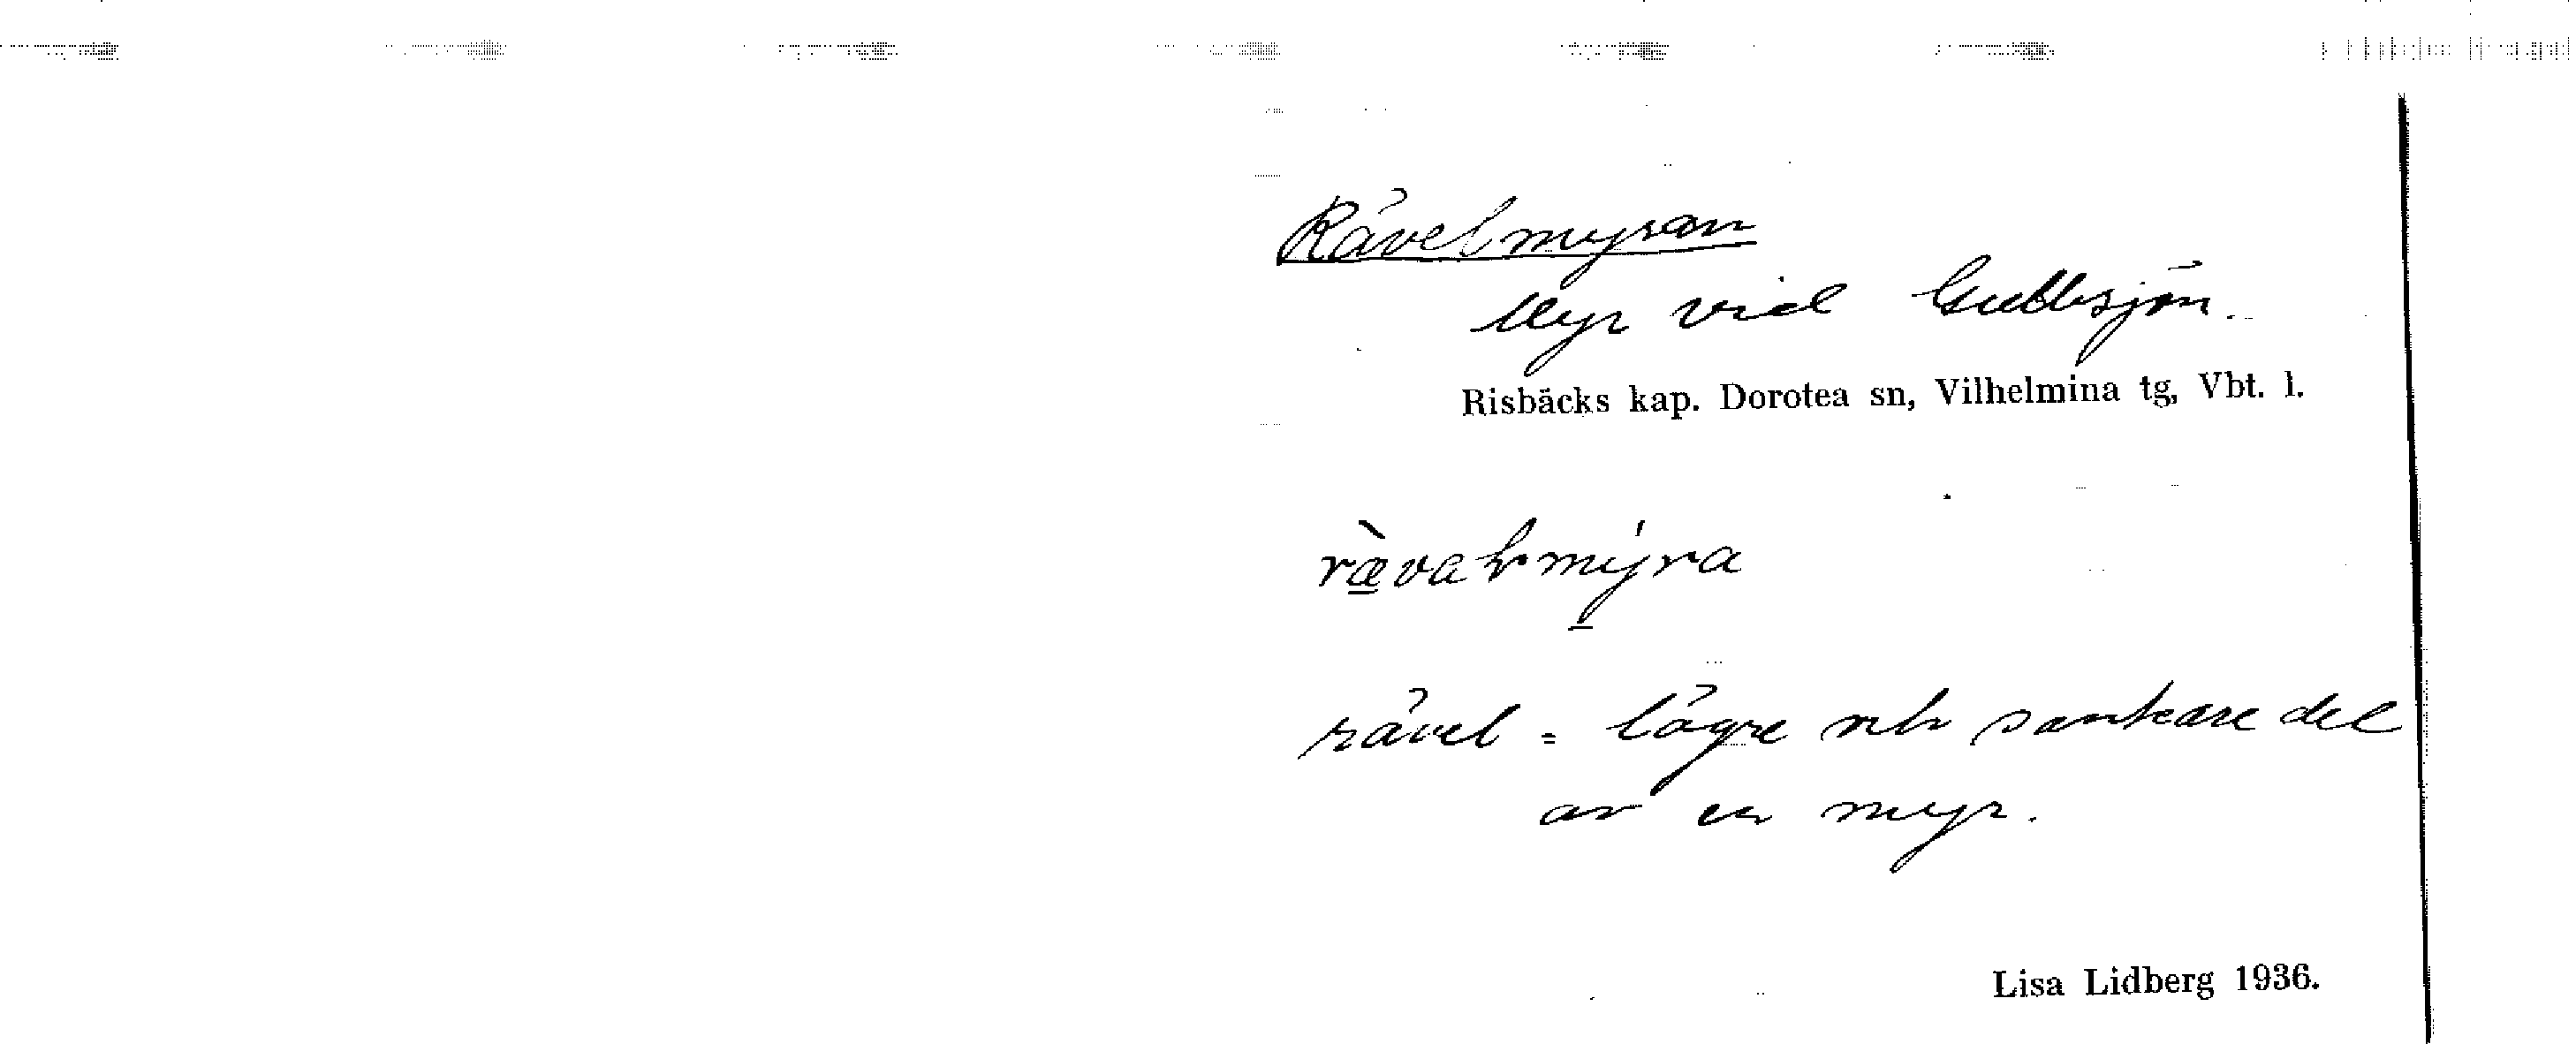 Rävelmyran
Myr vid Gubbsjön.
Risbäcks kap. Dorotea sn, Vilhelmina tg, Vbt. l.
rävel = lägre och sankare del
av en myr.
Lisa Lidberg 1936.